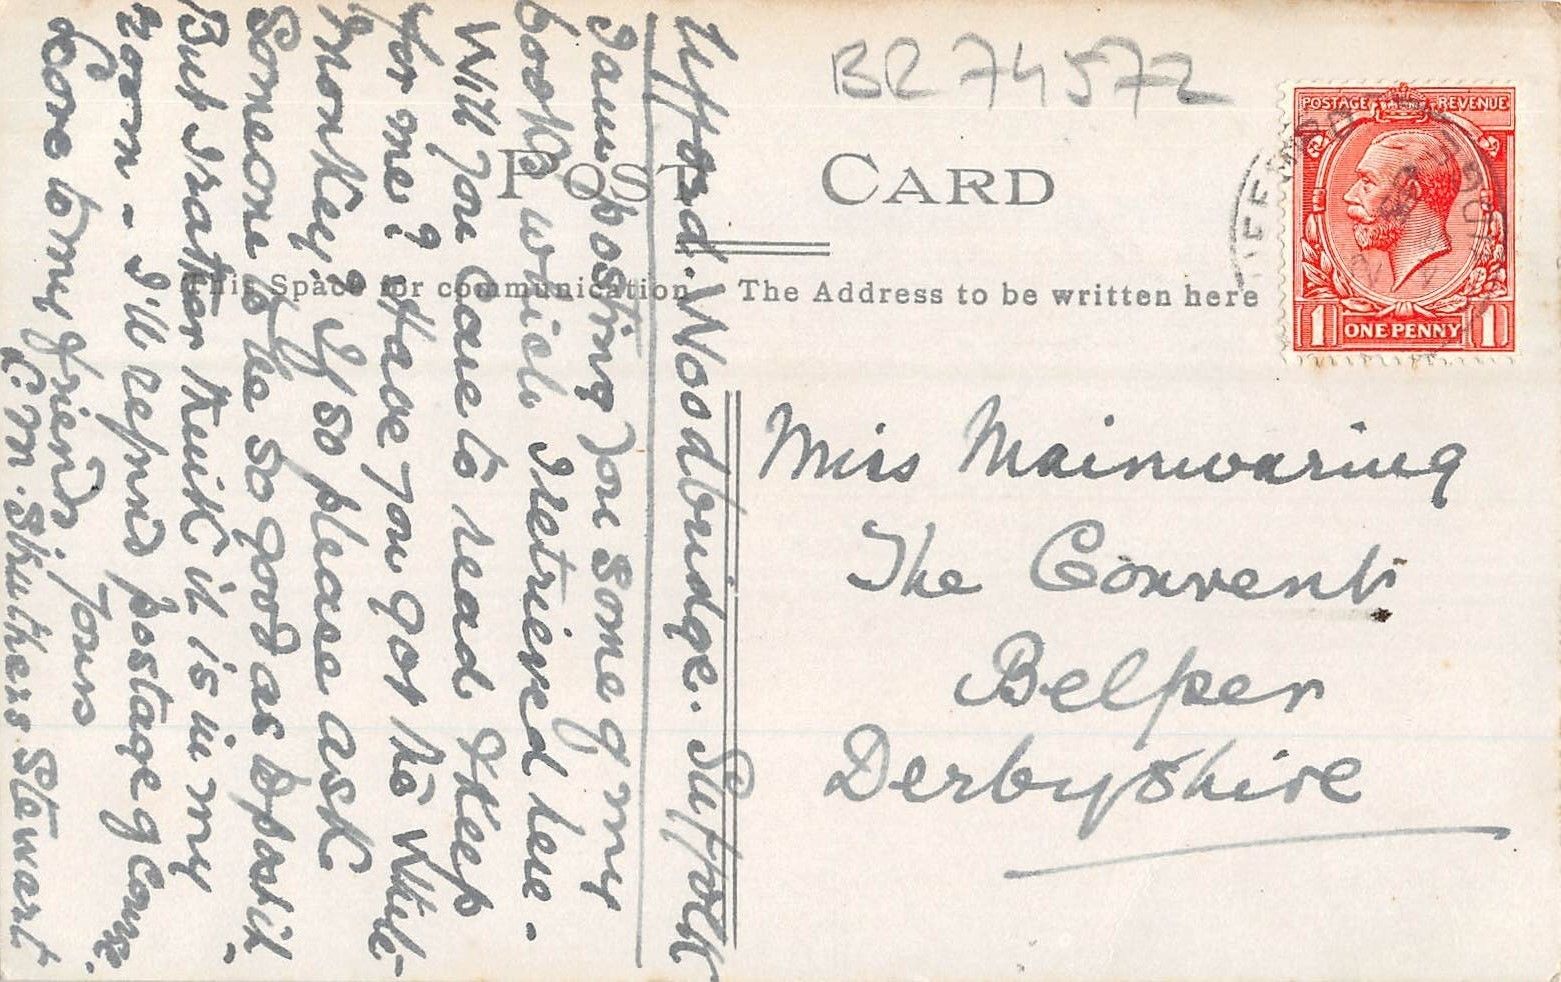 BR 74572
POST CARD
This Space for communication
The Address to be written here
POSTAGE REVENUE
1 ONE PENNY 1
Miss Mainwaring
The Convent
Belper
Derbyshire
Ufford. Woodbridge. Suffolk
I am posting you some of my
books which I retrieved here.
Will you care to read & keep
for me? Have you got the White
Monkey? If so please ask
Someone to be so good as to post it.
But I rather think it is in my
room - I'll refund postage of course.
Love to my friends
Yours
C. M. Struthers Stewart